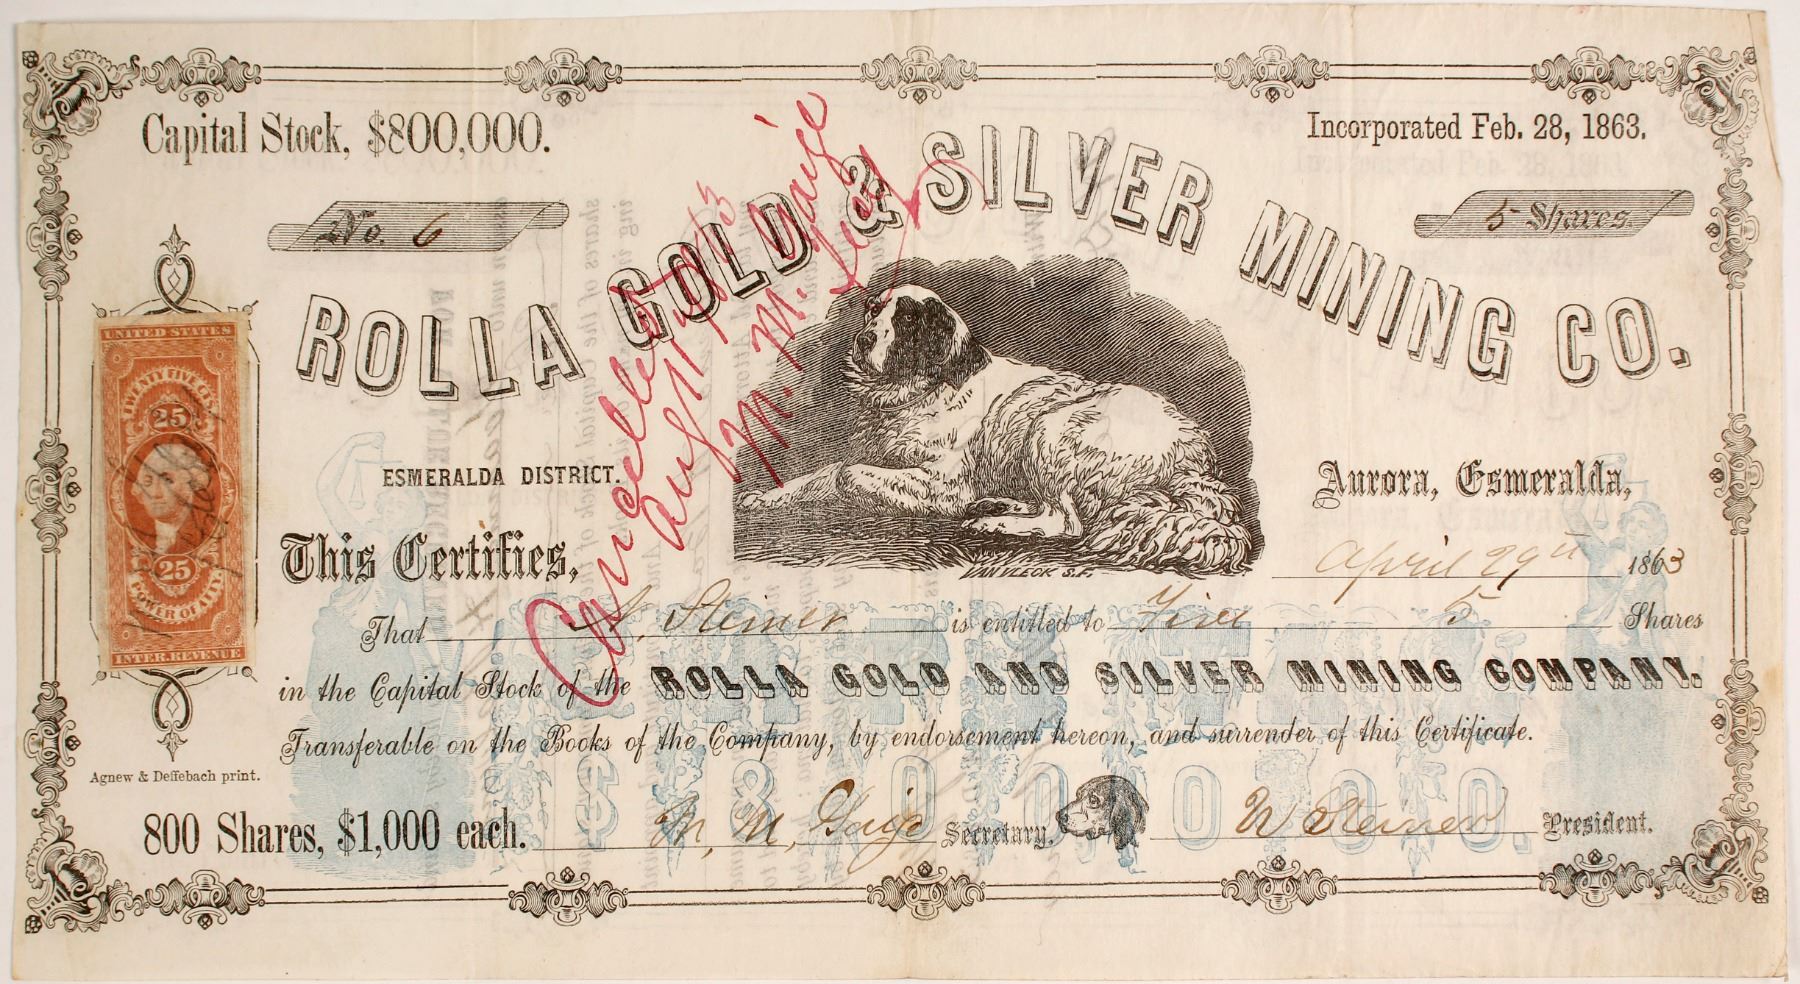 Capital Stock, $800,000.
Incorporated Feb. 28, 1863.
No. 6
5 Shares.
ROLLA GOLD & SILVER MINING CO.
UNITED STATES
TWENTY FIVE CTS.
25
25
POWER OF ATT'Y
INTER. REVENUE
Cancelled
Aug 11th /63
M. M. Gaige
Secy
ESMERALDA DISTRICT.
Aurora, Esmeralda,
April 29th 1863
VANVLECK S.F.
This Certifies,
That A. Steiner is entitled to Five 5 Shares
in the Capital Stock of the ROLLA GOLD AND SILVER MINING COMPANY.
Transferable on the Books of the Company, by endorsement hereon, and surrender of this Certificate.
Agnew & Deffebach print.
$800,000.
800 Shares, $1,000 each.
M. M. Gaige Secretary.
W Steiner President.